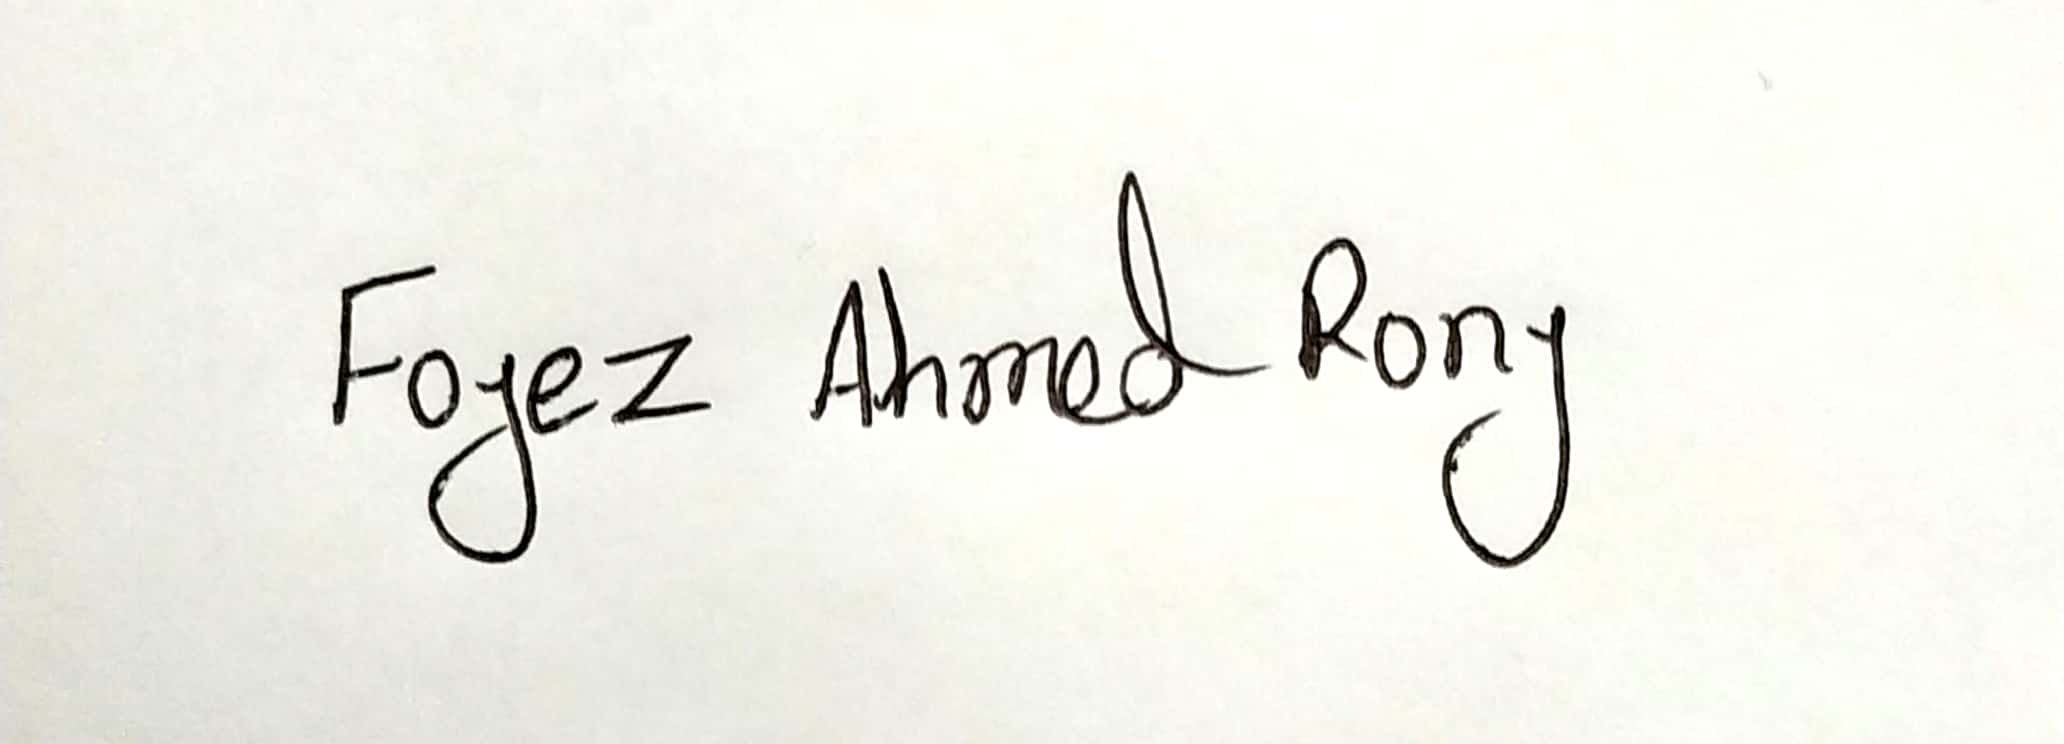 Foyez Ahmed Rony